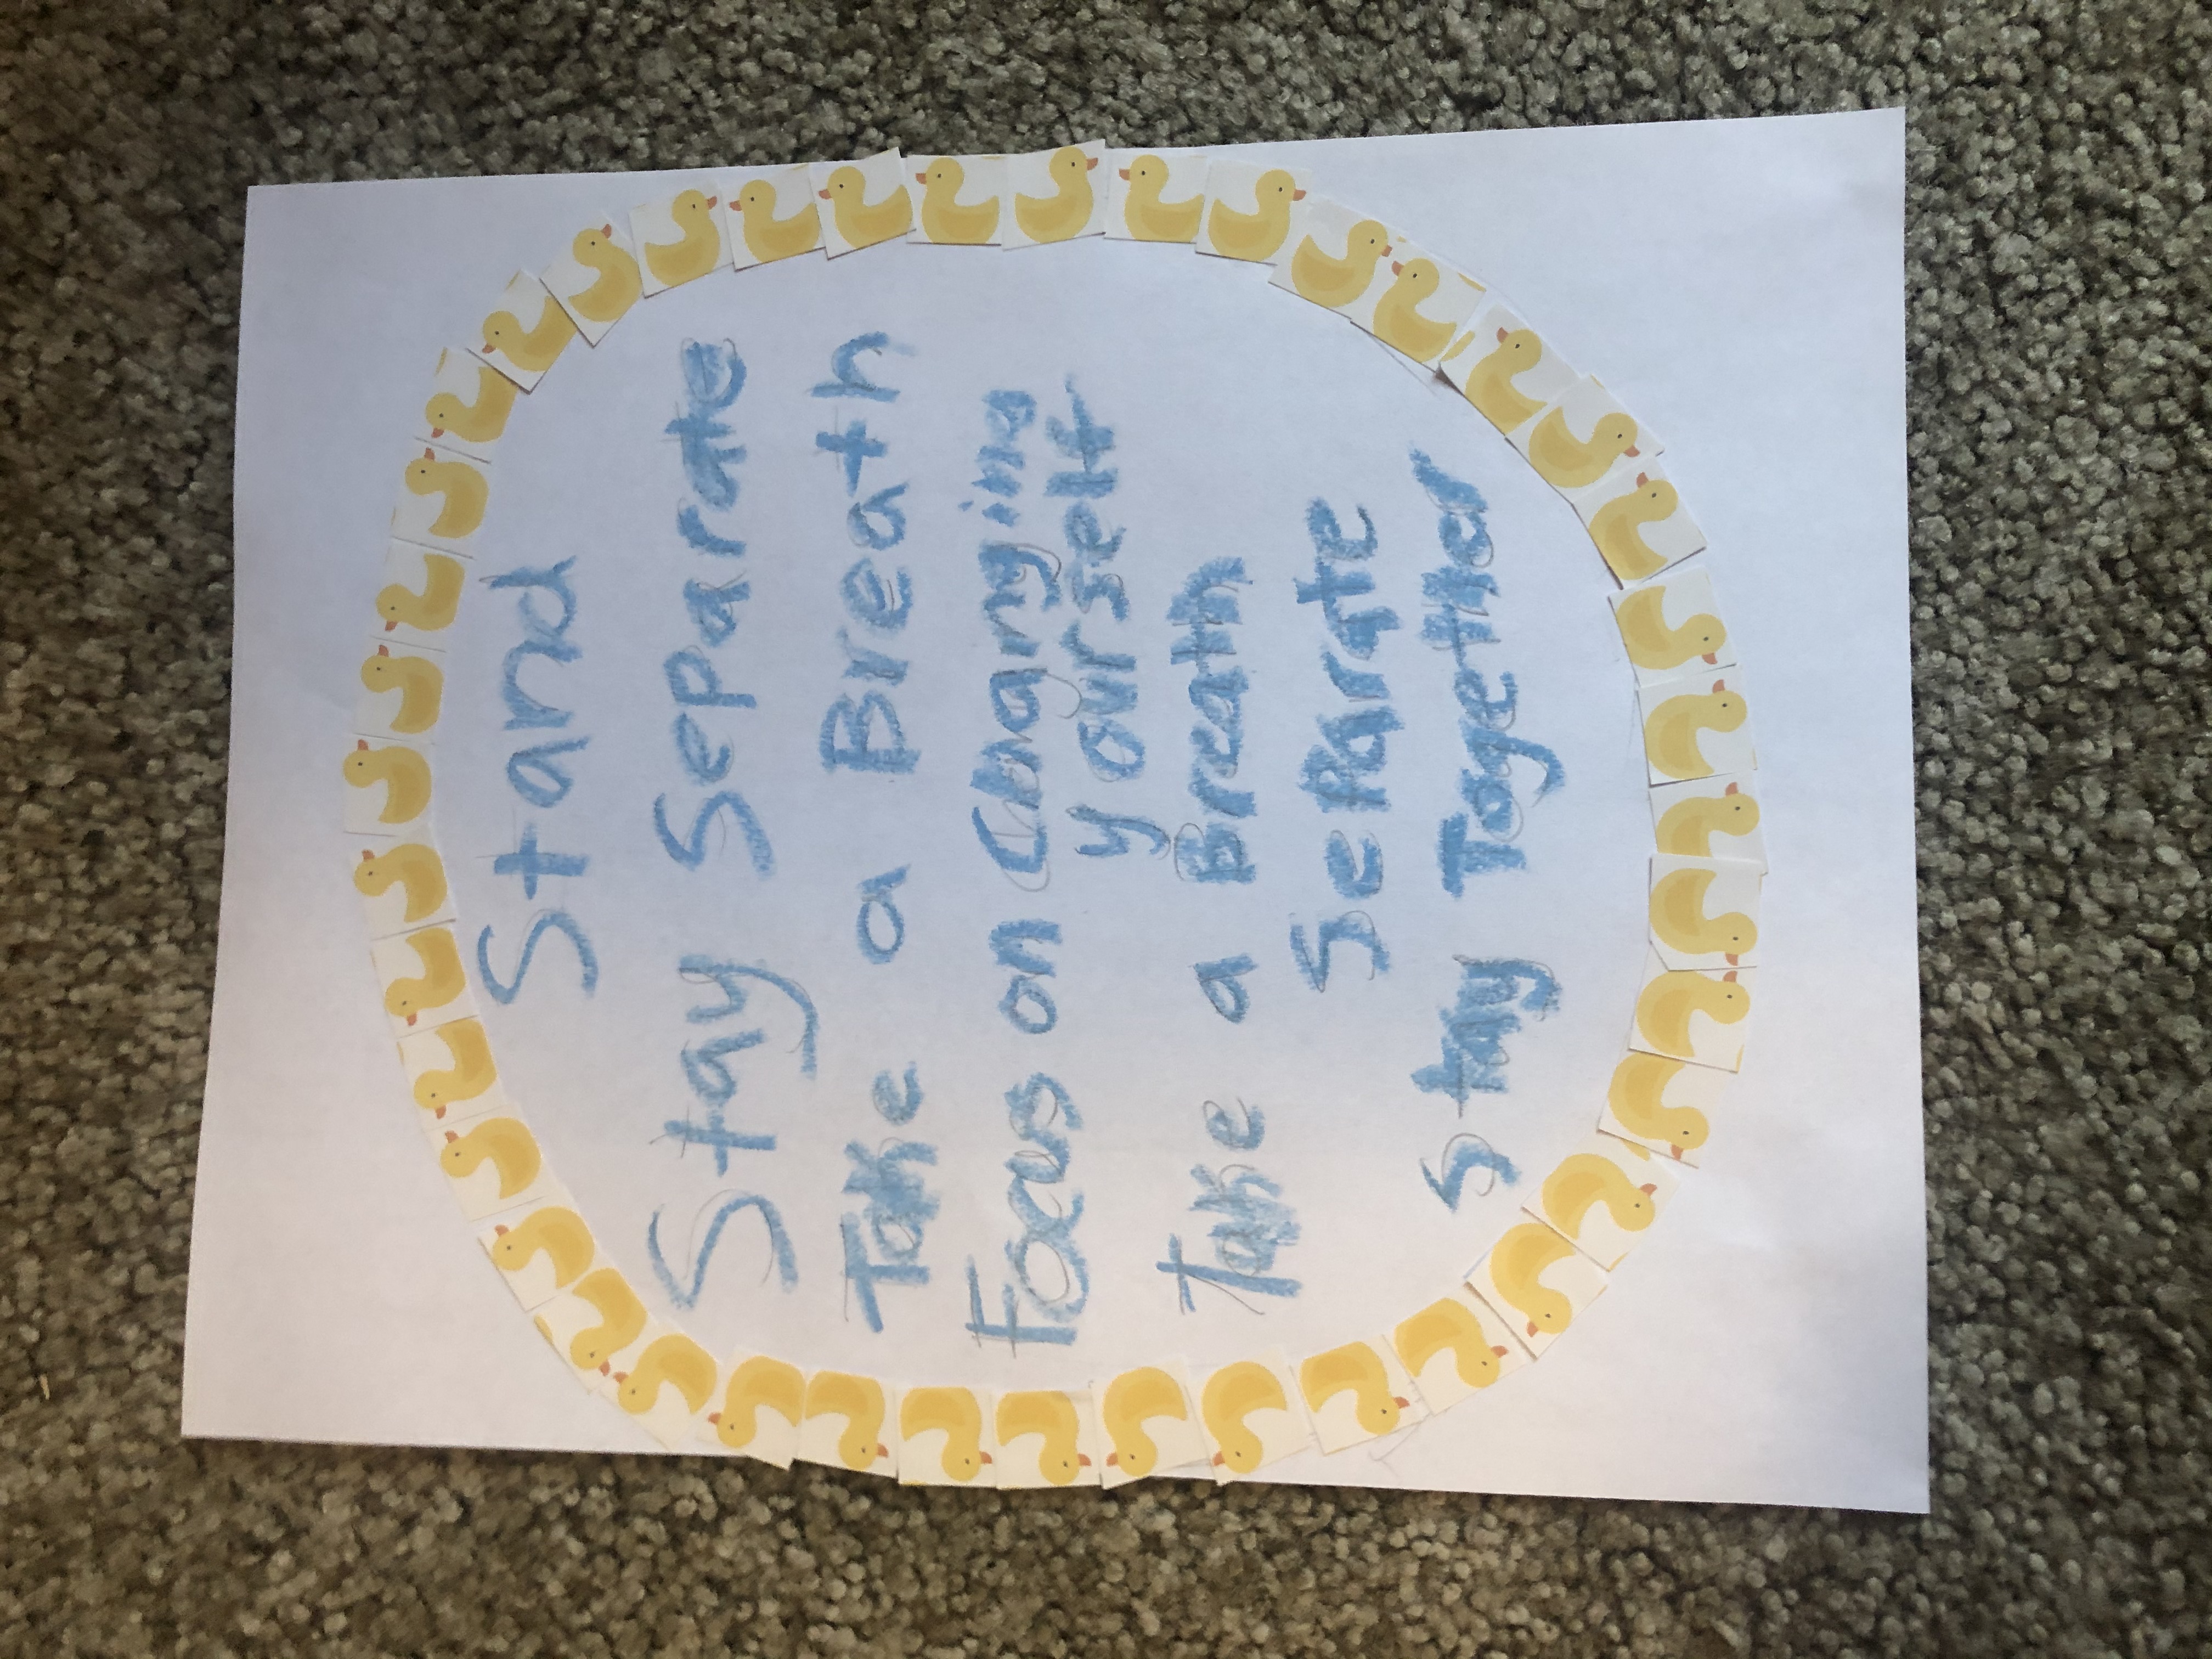 Stand
Stay Separate
Take a Breath
Focus on Changing
yourself
Take a Breath
Separate
Stay Together